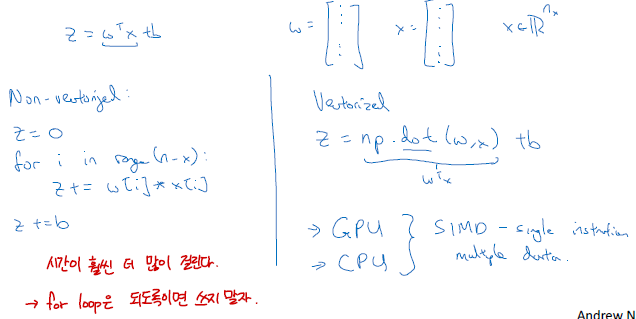 z = wᵀx + b
w = [⋮] x = [⋮] x ∈ ℝⁿˣ
Non-vectorized:
z = 0
for i in range(n-x):
z += w[i] * x[i]
z += b
시간이 훨씬 더 많이 걸린다.
→ for loop은 되도록이면 쓰지 말자.
Vectorized
z = np.dot(w,x) + b
wᵀx
→ GPU
→ CPU
} SIMD - single instruction
multiple data.
Andrew N